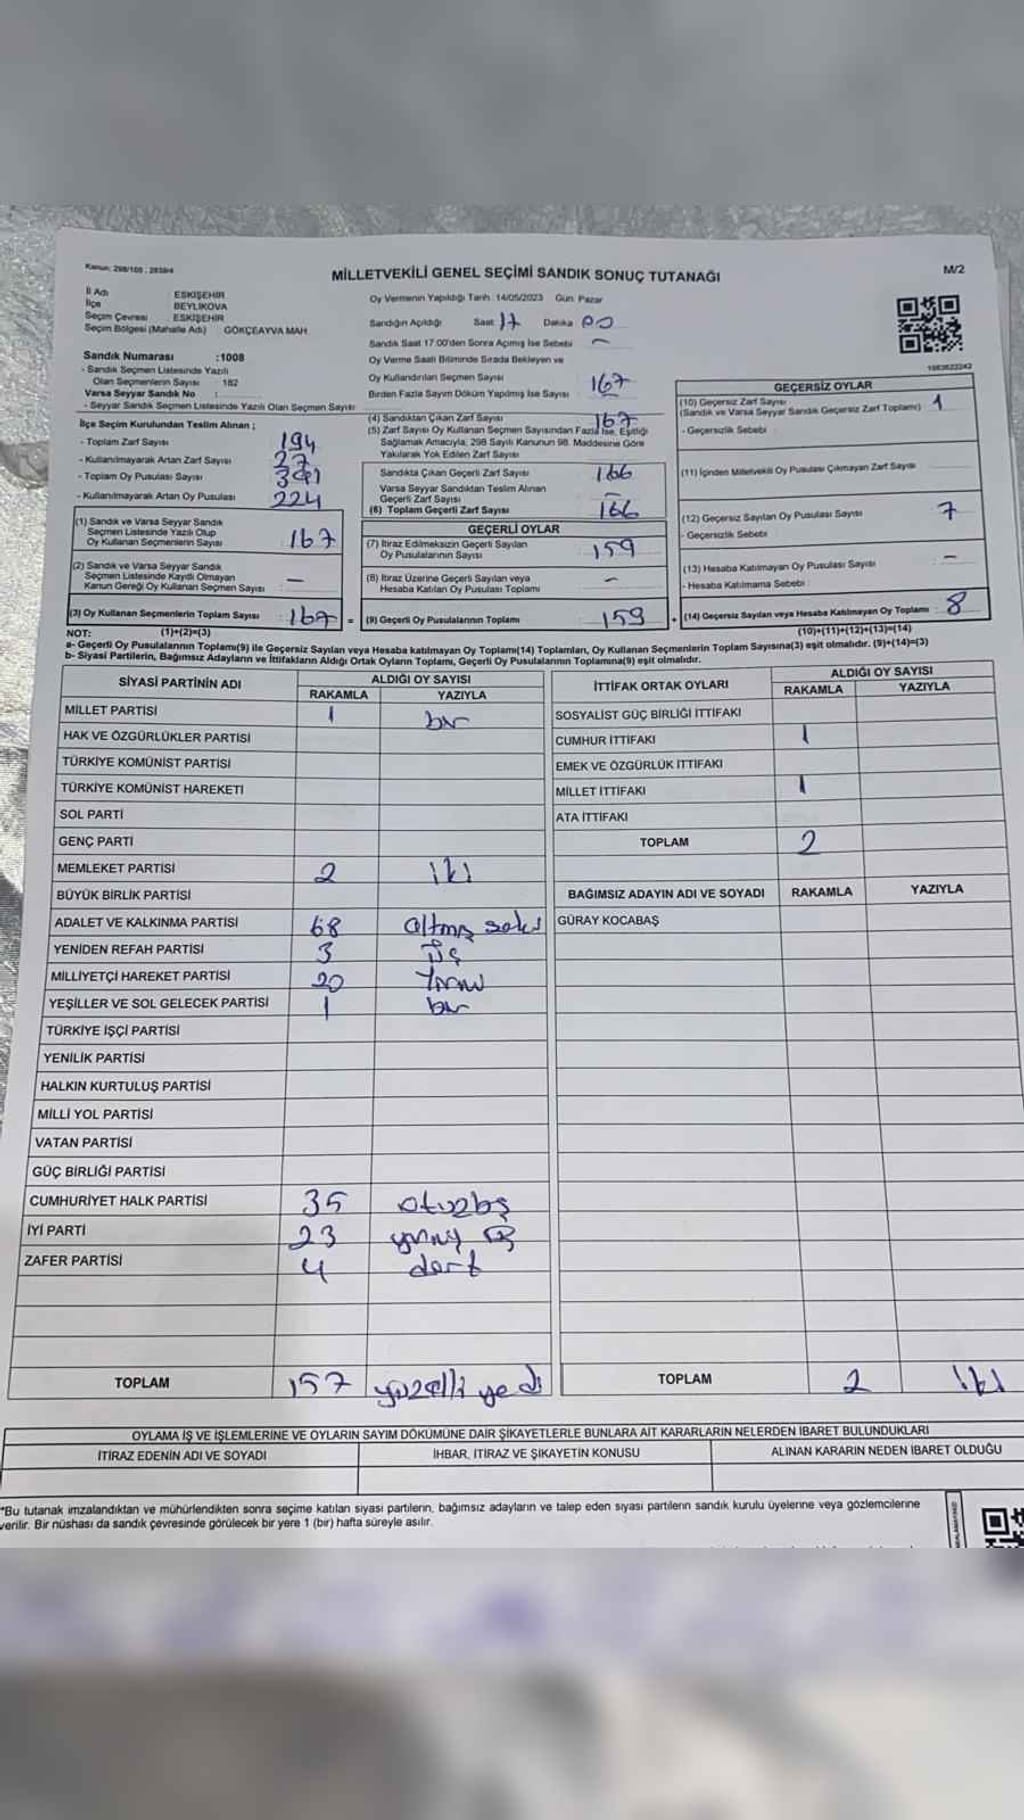 Kanun: 298/105 ; 2839/4
MİLLETVEKİLİ GENEL SEÇİMİ SANDIK SONUÇ TUTANAĞI
M/2
İl Adı : ESKİŞEHİR
İlçe : BEYLİKOVA
Seçim Çevresi : ESKİŞEHİR
Seçim Bölgesi (Mahalle Adı) : GÖKÇEAYVA MAH.
Sandık Numarası :1008
- Sandık Seçmen Listesinde Yazılı
Olan Seçmenlerin Sayısı : 182
Varsa Seyyar Sandık No :
- Seyyar Sandık Seçmen Listesinde Yazılı Olan Seçmen Sayısı:
İlçe Seçim Kurulundan Teslim Alınan ;
- Toplam Zarf Sayısı : 194
- Kullanılmayarak Artan Zarf Sayısı : 27
- Toplam Oy Pusulası Sayısı : 391
- Kullanılmayarak Artan Oy Pusulası : 224
(1) Sandık ve Varsa Seyyar Sandık
Seçmen Listesinde Yazılı Olup
Oy Kullanan Seçmenlerin Sayısı : 167
(2) Sandık ve Varsa Seyyar Sandık
Seçmen Listesinde Kaydı Olmayan
Kanun Gereği Oy Kullanan Seçmen Sayısı : —
(3) Oy Kullanan Seçmenlerin Toplam Sayısı : 167
Oy Vermenin Yapıldığı Tarih: 14/05/2023 Gün: Pazar
Sandığın Açıldığı Saat 17 Dakika 00
Sandık Saat 17:00'den Sonra Açımış İse Sebebi : —
Oy Verme Saati Bitiminde Sırada Bekleyen ve
Oy Kullandırılan Seçmen Sayısı :
Birden Fazla Sayım Döküm Yapılmış İse Sayısı : 167
(4) Sandıktan Çıkan Zarf Sayısı : 167
(5) Zarf Sayısı Oy Kullanan Seçmen Sayısından Fazla İse, Eşitliği
Sağlamak Amacıyla; 298 Sayılı Kanunun 98. Maddesine Göre
Yakılarak Yok Edilen Zarf Sayısı : —
Sandıkta Çıkan Geçerli Zarf Sayısı : 166
Varsa Seyyar Sandıktan Teslim Alınan
Geçerli Zarf Sayısı : —
(6) Toplam Geçerli Zarf Sayısı : 166
GEÇERLİ OYLAR
(7) İtiraz Edilmeksizin Geçerli Sayılan
Oy Pusulalarının Sayısı : 159
(8) İtiraz Üzerine Geçerli Sayılan veya
Hesaba Katılan Oy Pusulası Toplamı : —
= (9) Geçerli Oy Pusulalarının Toplamı : 159
1063622242
GEÇERSİZ OYLAR
(10) Geçersiz Zarf Sayısı : 1
(Sandık ve Varsa Seyyar Sandık Geçersiz Zarf Toplamı)
- Geçersizlik Sebebi :
(11) İçinden Milletvekili Oy Pusulası Çıkmayan Zarf Sayısı :
(12) Geçersiz Sayılan Oy Pusulası Sayısı : 7
- Geçersizlik Sebebi :
(13) Hesaba Katılmayan Oy Pusulası Sayısı : —
- Hesaba Katılmama Sebebi :
+ (14) Geçersiz Sayılan veya Hesaba Katılmayan Oy Toplamı : 8
NOT: (1)+(2)=(3) (10)+(11)+(12)+(13)=(14)
a- Geçerli Oy Pusulalarının Toplamı(9) ile Geçersiz Sayılan veya Hesaba katılmayan Oy Toplamı(14) Toplamları, Oy Kullanan Seçmenlerin Toplam Sayısına(3) eşit olmalıdır. (9)+(14)=(3)
b- Siyasi Partilerin, Bağımsız Adayların ve İttifakların Aldığı Ortak Oyların Toplamı, Geçerli Oy Pusulalarının Toplamına(9) eşit olmalıdır.
SİYASİ PARTİNİN ADI ALDIĞI OY SAYISI
RAKAMLA YAZIYLA
MİLLET PARTİSİ 1 bir
HAK VE ÖZGÜRLÜKLER PARTİSİ
TÜRKİYE KOMÜNİST PARTİSİ
TÜRKİYE KOMÜNİST HAREKETİ
SOL PARTİ
GENÇ PARTİ
MEMLEKET PARTİSİ 2 iki
BÜYÜK BİRLİK PARTİSİ
ADALET VE KALKINMA PARTİSİ 68 altmış sekiz
YENİDEN REFAH PARTİSİ 3 üç
MİLLİYETÇİ HAREKET PARTİSİ 20 yirmi
YEŞİLLER VE SOL GELECEK PARTİSİ 1 bir
TÜRKİYE İŞÇİ PARTİSİ
YENİLİK PARTİSİ
HALKIN KURTULUŞ PARTİSİ
MİLLİ YOL PARTİSİ
VATAN PARTİSİ
GÜÇ BİRLİĞİ PARTİSİ
CUMHURİYET HALK PARTİSİ 35 otuzbş
İYİ PARTİ 23 yirmi üç
ZAFER PARTİSİ 4 dört
TOPLAM 157 yüzelli yedi
İTTİFAK ORTAK OYLARI ALDIĞI OY SAYISI
RAKAMLA YAZIYLA
SOSYALİST GÜÇ BİRLİĞİ İTTİFAKI
CUMHUR İTTİFAKI 1
EMEK VE ÖZGÜRLÜK İTTİFAKI
MİLLET İTTİFAKI 1
ATA İTTİFAKI
TOPLAM 2
BAĞIMSIZ ADAYIN ADI VE SOYADI RAKAMLA YAZIYLA
GÜRAY KOCABAŞ
TOPLAM 2 iki
OYLAMA İŞ VE İŞLEMLERİNE VE OYLARIN SAYIM DÖKÜMÜNE DAİR ŞİKAYETLERLE BUNLARA AİT KARARLARIN NELERDEN İBARET BULUNDUKLARI
İTİRAZ EDENİN ADI VE SOYADI İHBAR, İTİRAZ VE ŞİKAYETİN KONUSU ALINAN KARARIN NEDEN İBARET OLDUĞU
"Bu tutanak imzalandıktan ve mühürlendikten sonra seçime katılan siyasi partilerin, bağımsız adayların ve talep eden siyasi partilerin sandık kurulu üyelerine veya gözlemcilerine
verilir. Bir nüshası da sandık çevresinde görülecek bir yere 1 (bir) hafta süreyle asılır.